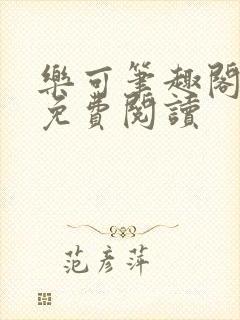 樂可筆趣閣
免費閱讀
范彥萍